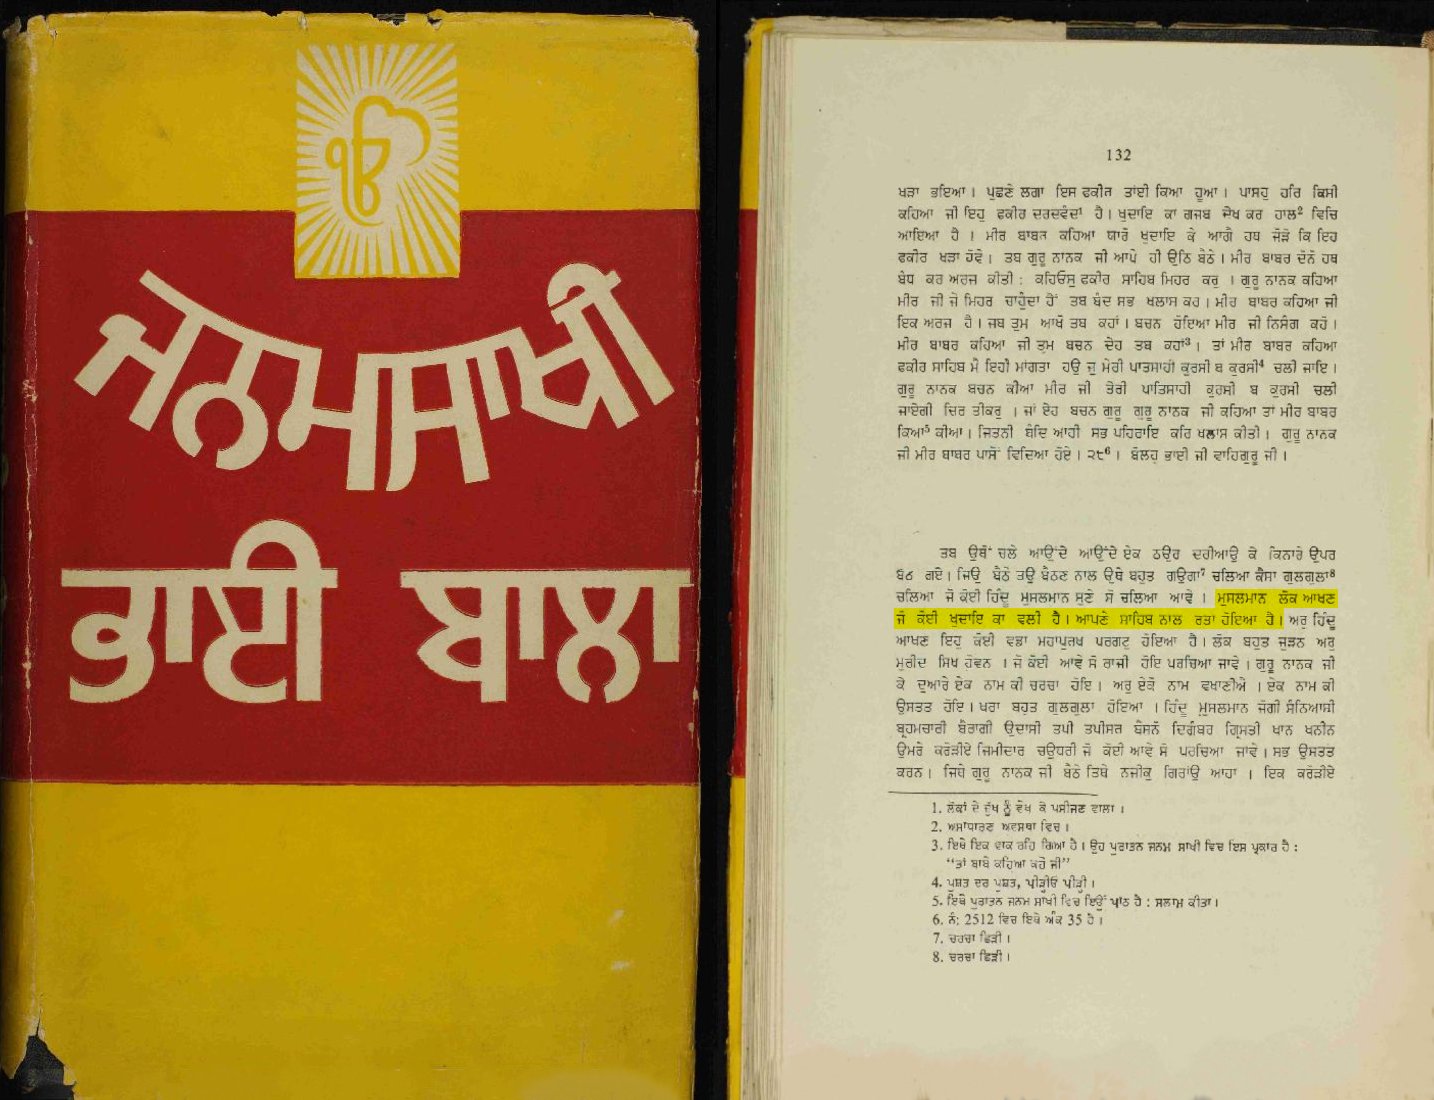 ੴ
ਜਨਮਸਾਖੀ
ਭਾਈ ਬਾਲਾ
132
ਖੜਾ ਭਇਆ। ਪੁਛਣੇ ਲਗਾ ਇਸ ਫਕੀਰ ਤਾਂਈ ਕਿਆ ਹੂਆ। ਪਾਸਹੁ ਹਰਿ ਕਿਸੀ
ਕਹਿਆ ਜੀ ਇਹੁ ਫਕੀਰ ਦਰਦਵੰਦਾ¹ ਹੈ। ਖੁਦਾਇ ਕਾ ਗਜਬ ਦੇਖ ਕਰ ਹਾਲ² ਵਿਚਿ
ਆਇਆ ਹੈ । ਮੀਰ ਬਾਬਰ ਕਹਿਆ ਯਾਰੋ ਖੁਦਾਇ ਕੇ ਆਗੈ ਹਥ ਜੋੜੋ ਕਿ ਇਹ
ਫਕੀਰ ਖੜਾ ਹੋਵੇ। ਤਬ ਗੁਰੂ ਨਾਨਕ ਜੀ ਆਪੇ ਹੀ ਉਠਿ ਬੈਠੇ। ਮੀਰ ਬਾਬਰ ਦੋਨੋ ਹਥ
ਬੰਧ ਕਰ ਅਰਜ ਕੀਤੀ : ਕਹਿਓਸੁ ਫਕੀਰ ਸਾਹਿਬ ਮਿਹਰ ਕਰੁ । ਗੁਰੂ ਨਾਨਕ ਕਹਿਆ
ਮੀਰ ਜੀ ਜੇ ਮਿਹਰ ਚਾਹੁੰਦਾ ਹੈਂ ਤਬ ਬੰਦ ਸਭ ਖਲਾਸ ਕਰ। ਮੀਰ ਬਾਬਰ ਕਹਿਆ ਜੀ
ਇਕ ਅਰਜ ਹੈ। ਜਬ ਤੁਮ ਆਖੋ ਤਬ ਕਹਾਂ। ਬਚਨ ਹੋਇਆ ਮੀਰ ਜੀ ਨਿਸੰਗ ਕਹੋ।
ਮੀਰ ਬਾਬਰ ਕਹਿਆ ਜੀ ਤੁਮ ਬਚਨ ਦੇਹ ਤਬ ਕਹਾਂ³। ਤਾਂ ਮੀਰ ਬਾਬਰ ਕਹਿਆ
ਫਕੀਰ ਸਾਹਿਬ ਮੈ ਇਹੀ ਮਾਂਗਤਾ ਹਉ ਜੁ ਮੇਰੀ ਪਾਤਸਾਹੀ ਕੁਰਸੀ ਬ ਕੁਰਸੀ⁴ ਚਲੀ ਜਾਇ।
ਗੁਰੂ ਨਾਨਕ ਬਚਨ ਕੀਆ ਮੀਰ ਜੀ ਤੇਰੀ ਪਾਤਿਸਾਹੀ ਕੁਰਸੀ ਬ ਕੁਰਸੀ ਚਲੀ
ਜਾਏਗੀ ਚਿਰ ਤੀਕਰੁ । ਜਾਂ ਏਹ ਬਚਨ ਗੁਰੂ ਗੁਰੂ ਨਾਨਕ ਜੀ ਕਹਿਆ ਤਾਂ ਮੀਰ ਬਾਬਰ
ਕਿਆ⁵ ਕੀਆ। ਜਿਤਨੀ ਬੰਦਿ ਆਹੀ ਸਭ ਪਹਿਰਾਇ ਕਰਿ ਖਲਾਸ ਕੀਤੀ। ਗੁਰੂ ਨਾਨਕ
ਜੀ ਮੀਰ ਬਾਬਰ ਪਾਸੋਂ ਵਿਦਿਆ ਹੋਏ। ੨੮⁶। ਬੋਲਹੁ ਭਾਈ ਜੀ ਵਾਹਿਗੁਰੂ ਜੀ।
ਤਬ ਉਥੋਂ ਚਲੇ ਆਉਂਦੇ ਆਉਂਦੇ ਏਕ ਠਉਰ ਦਰੀਆਉ ਕੇ ਕਿਨਾਰੇ ਉਪਰ
ਬੈਠ ਗਏ। ਜਿਉ ਬੈਠੇ ਤਉ ਬੈਠਣ ਨਾਲ ਉਥੇ ਬਹੁਤ ਗਉਗਾ⁷ ਚਲਿਆ ਕੈਸਾ ਗੁਲਗੁਲਾ⁸
ਚਲਿਆ ਜੋ ਕੋਈ ਹਿੰਦੂ ਮੁਸਲਮਾਨ ਸੁਣੇ ਸੋ ਚਲਿਆ ਆਵੇ । ਮੁਸਲਮਾਨ ਲੋਕ ਆਖਣ
ਜੋ ਕੋਈ ਖੁਦਾਇ ਕਾ ਵਲੀ ਹੈ। ਆਪਣੇ ਸਾਹਿਬ ਨਾਲ ਰਤਾ ਹੋਇਆ ਹੈ। ਅਰੁ ਹਿੰਦੂ
ਆਖਣ ਇਹੁ ਕੋਈ ਵਡਾ ਮਹਾਪੁਰਖ ਪਰਗਟੁ ਹੋਇਆ ਹੈ। ਲੋਕ ਬਹੁਤ ਜੁੜਨ ਅਰੁ
ਮੁਰੀਦ ਸਿਖ ਹੋਵਨ । ਜੋ ਕੋਈ ਆਵੇ ਸੋ ਰਾਜੀ ਹੋਇ ਪਰਚਿਆ ਜਾਵੇ। ਗੁਰੂ ਨਾਨਕ ਜੀ
ਕੇ ਦੁਆਰੇ ਏਕ ਨਾਮ ਕੀ ਚਰਚਾ ਹੋਇ। ਅਰੁ ਏਕੋ ਨਾਮ ਵਖਾਣੀਐ । ਏਕ ਨਾਮ ਕੀ
ਉਸਤਤ ਹੋਇ। ਖਰਾ ਬਹੁਤ ਗੁਲਗੁਲਾ ਹੋਇਆ । ਹਿੰਦੂ ਮੁਸਲਮਾਨ ਜੋਗੀ ਸੰਨਿਆਸੀ
ਬ੍ਰਹਮਚਾਰੀ ਬੈਰਾਗੀ ਉਦਾਸੀ ਤਪੀ ਤਪੀਸਰ ਬੈਸਨੋ ਦਿਗੰਬਰ ਗ੍ਰਿਸਤੀ ਖਾਨ ਖਨੀਨ
ਉਮਰੇ ਕਰੋੜੀਏ ਜਿਮੀਦਾਰ ਚਉਧਰੀ ਜੋ ਕੋਈ ਆਵੇ ਸੋ ਪਰਚਿਆ ਜਾਵੇ। ਸਭ ਉਸਤਤ
ਕਰਨ। ਜਿਥੇ ਗੁਰੂ ਨਾਨਕ ਜੀ ਬੈਠੇ ਤਿਥੇ ਨਜੀਕੁ ਗਿਰਾਂਉ ਆਹਾ । ਇਕ ਕਰੋੜੀਏ
1. ਲੋਕਾਂ ਦੇ ਦੁੱਖ ਨੂੰ ਵੇਖ ਕੇ ਪਸੀਜਣ ਵਾਲਾ ।
2. ਅਸਾਧਾਰਣ ਅਵਸਥਾ ਵਿਚ।
3. ਇਥੇ ਇਕ ਵਾਕ ਰਹਿ ਗਿਆ ਹੈ। ਉਹ ਪੁਰਾਤਨ ਜਨਮ ਸਾਖੀ ਵਿਚ ਇਸ ਪ੍ਰਕਾਰ ਹੈ :
“ਤਾਂ ਬਾਬੇ ਕਹਿਆ ਕਹੋ ਜੀ”
4. ਪੁਸ਼ਤ ਦਰ ਪੁਸ਼ਤ, ਪੀੜ੍ਹੀਓ ਪੀੜ੍ਹੀ।
5. ਇਥੇ ਪੁਰਾਤਨ ਜਨਮ ਸਾਖੀ ਵਿਚ ਇਉਂ ਪਾਠ ਹੈ : ਸਲਾਮੁ ਕੀਤਾ।
6. ਨੰ: 2512 ਵਿਚ ਇਥੇ ਅੰਕ 35 ਹੈ।
7. ਚਰਚਾ ਛਿੜੀ।
8. ਚਰਚਾ ਛਿੜੀ।